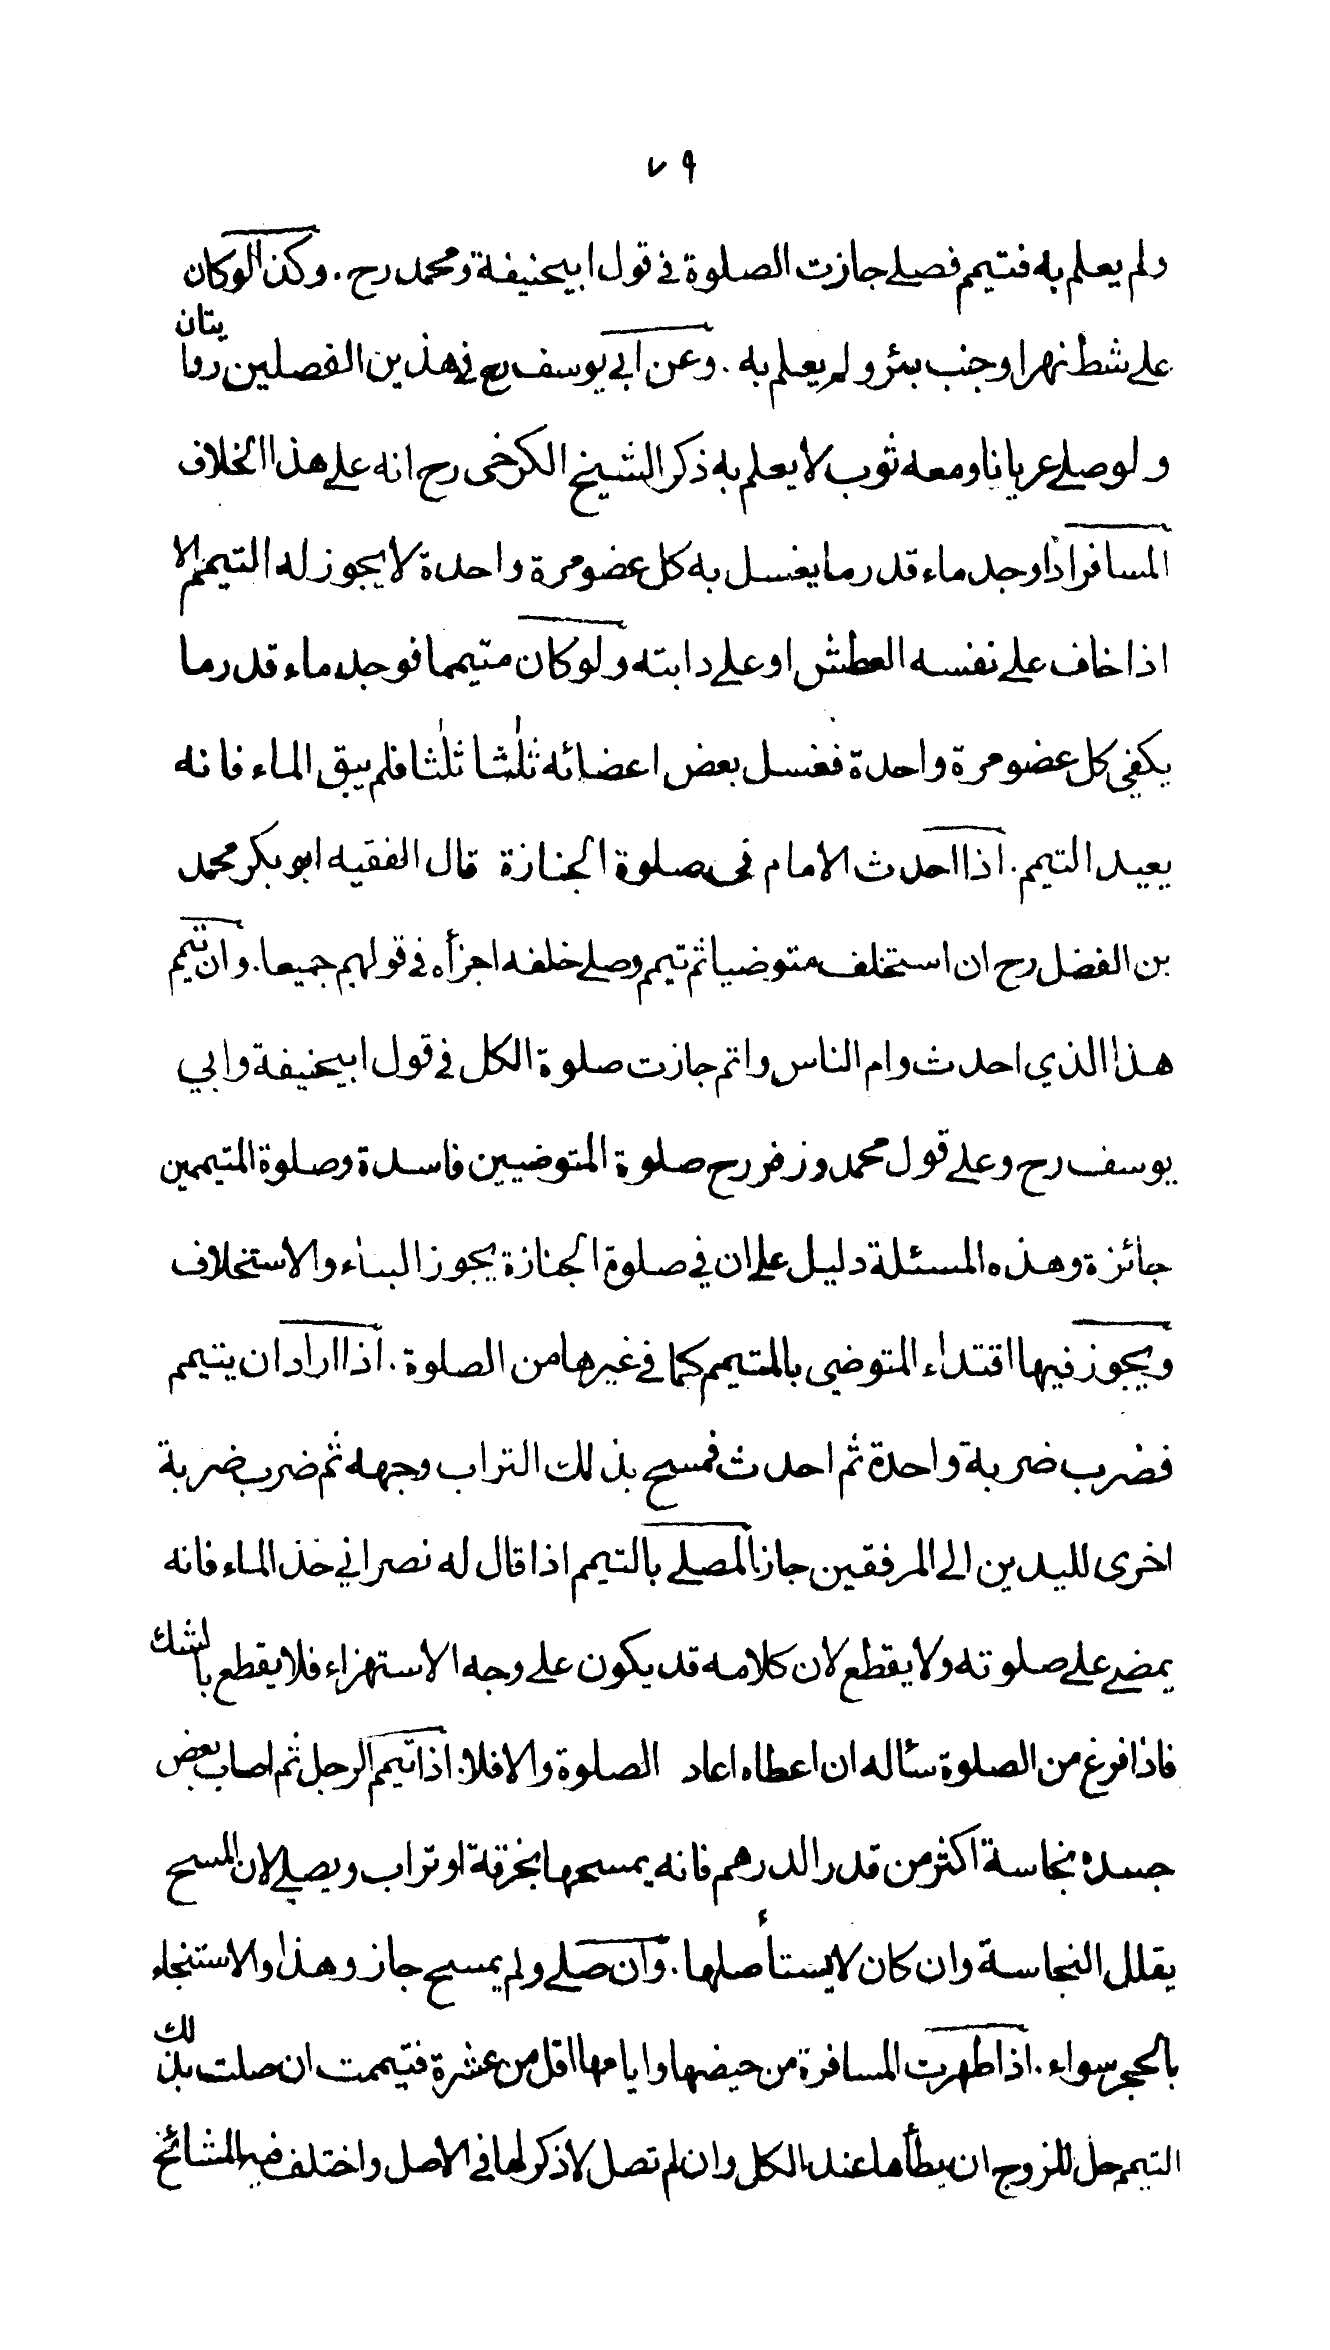 ٧٩
ولم يعلم به فتيمم فصلے جازت الصلوة في قول ابيحنيفة ومحمد رح . وكذا لوكان
علے شط نهر او جنب بئر ولم يعلم به . وعن ابي يوسف رح في هذين الفصلين روايتان
ولو صلے عريانا ومعه ثوب لا يعلم به ذكر الشيخ الكرخى رح انه علے هذا الخلاف
المسافر اذا وجد ماء قدر ما يغسل به كل عضو مرة واحدة لا يجوز له التيمم الا
اذا خاف علے نفسه العطش او علے دابته ولو كان متيمما فوجد ماء قدر ما
يكفي كل عضو مرة واحدة فغسل بعض اعضائه ثلٰثا ثلٰثا فلم يبق الماء فانه
يعيد التيمم . اذا احدث الامام فى صلوة الجنازة قال الفقيه ابو بكر محمد
بن الفضل رح ان استخلف متوضيا ثم تيمم وصلے خلفه اجزأه في قولهم جميعا . وان تيمم
هذا الذي احدث وام الناس واتم جازت صلوة الكل في قول ابيحنيفة وابي
يوسف رح وعلے قول محمد وزفر رح صلوة المتوضيين فاسدة وصلوة المتيممين
جائزة وهذه المسئلة دليل علے ان في صلوة الجنازة يجوز البناء والاستخلاف
ويجوز فيها اقتداء المتوضي بالمتيمم كما في غيرها من الصلوة . اذا اراد ان يتيمم
فضرب ضربة واحدة ثم احدث فمسح بذلك التراب وجهه ثم ضرب ضربة
اخرى لليدين الى المرفقين جاز المصلے بالتيمم اذا قال له نصراني خذ الماء فانه
يمضے علے صلوته ولا يقطع لان كلامه قد يكون علے وجه الاستهزاء فلا يقطع بالشك
فاذا فرغ من الصلوة سئاله ان اعطاه اعاد الصلوة والا فلا . اذا تيمم الرجل ثم اصاب بعض
جسده نجاسة اكثر من قدر الدرهم فانه يمسحها بخرقة او تراب ويصلے لان المسح
يقلل النجاسة وان كان لا يستأصلها . وان صلے ولم يمسح جاز وهذا والاستنجاء
بالحجر سواء . اذا طهرت المسافرة من حيضها وايامها اقل من عشرة فتيممت ان صلت بذلك
التيمم حل للزوج ان يطأها عند الكل وان لم تصل لا ذكر لها في الاصل واختلف فيه المشائخ